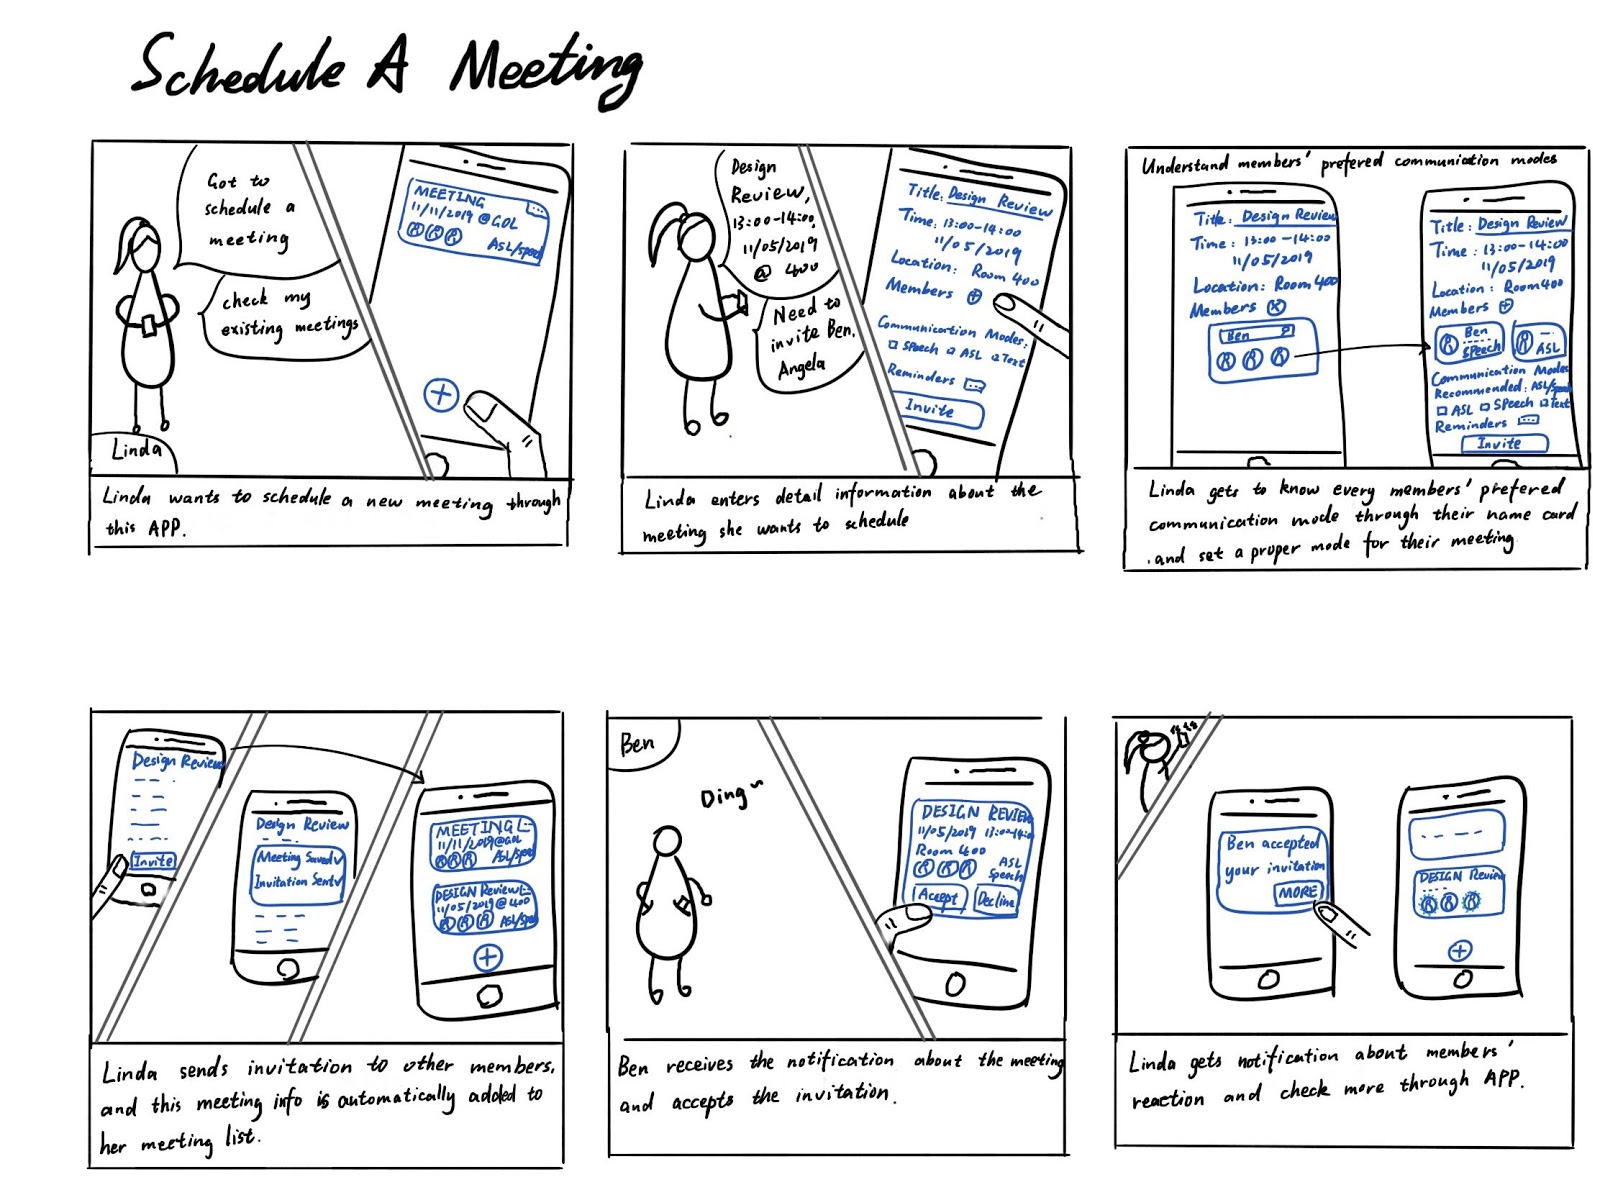 Schedule A Meeting
Got to
schedule a
meeting
check my
existing meetings
Linda
MEETING
11/11/2019 @GOL
ASL/speech
Linda wants to schedule a new meeting through
this APP.
Design
Review,
13:00-14:00,
11/05/2019
@ 400
Need to
invite Ben,
Angela
Title: Design Review
Time: 13:00-14:00
11/05/2019
Location: Room 400
Members
Communication Modes:
Speech ASL Text
Reminders
Invite
Linda enters detail information about the
meeting she wants to schedule
Understand members' prefered communication modes
Title: Design Review
Time: 13:00-14:00
11/05/2019
Location: Room 400
Members
Ben
Title: Design Review
Time: 13:00-14:00
11/05/2019
Location: Room 400
Members
Ben
Speech
ASL
Communication Modes
Recommended: ASL/Speech
ASL Speech Text
Reminders
Invite
Linda gets to know every members' prefered
communication mode through their name card
and set a proper mode for their meeting.
Design Review
Invite
Design Review
Meeting Saved√
Invitation Sent√
MEETING
11/11/2019@GOL
ASL/Speech
DESIGN Review
11/05/2019@400
ASL/Speech
Linda sends invitation to other members,
and this meeting info is automatically added to
her meeting list.
Ben
Ding~
DESIGN REVIEW
11/05/2019 13:00-14:00
Room 400
ASL
Speech
Accept Decline
Ben receives the notification about the meeting
and accepts the invitation.
Ben accepted
your invitation
MORE
DESIGN Review
Linda gets notification about members'
reaction and check more through APP.